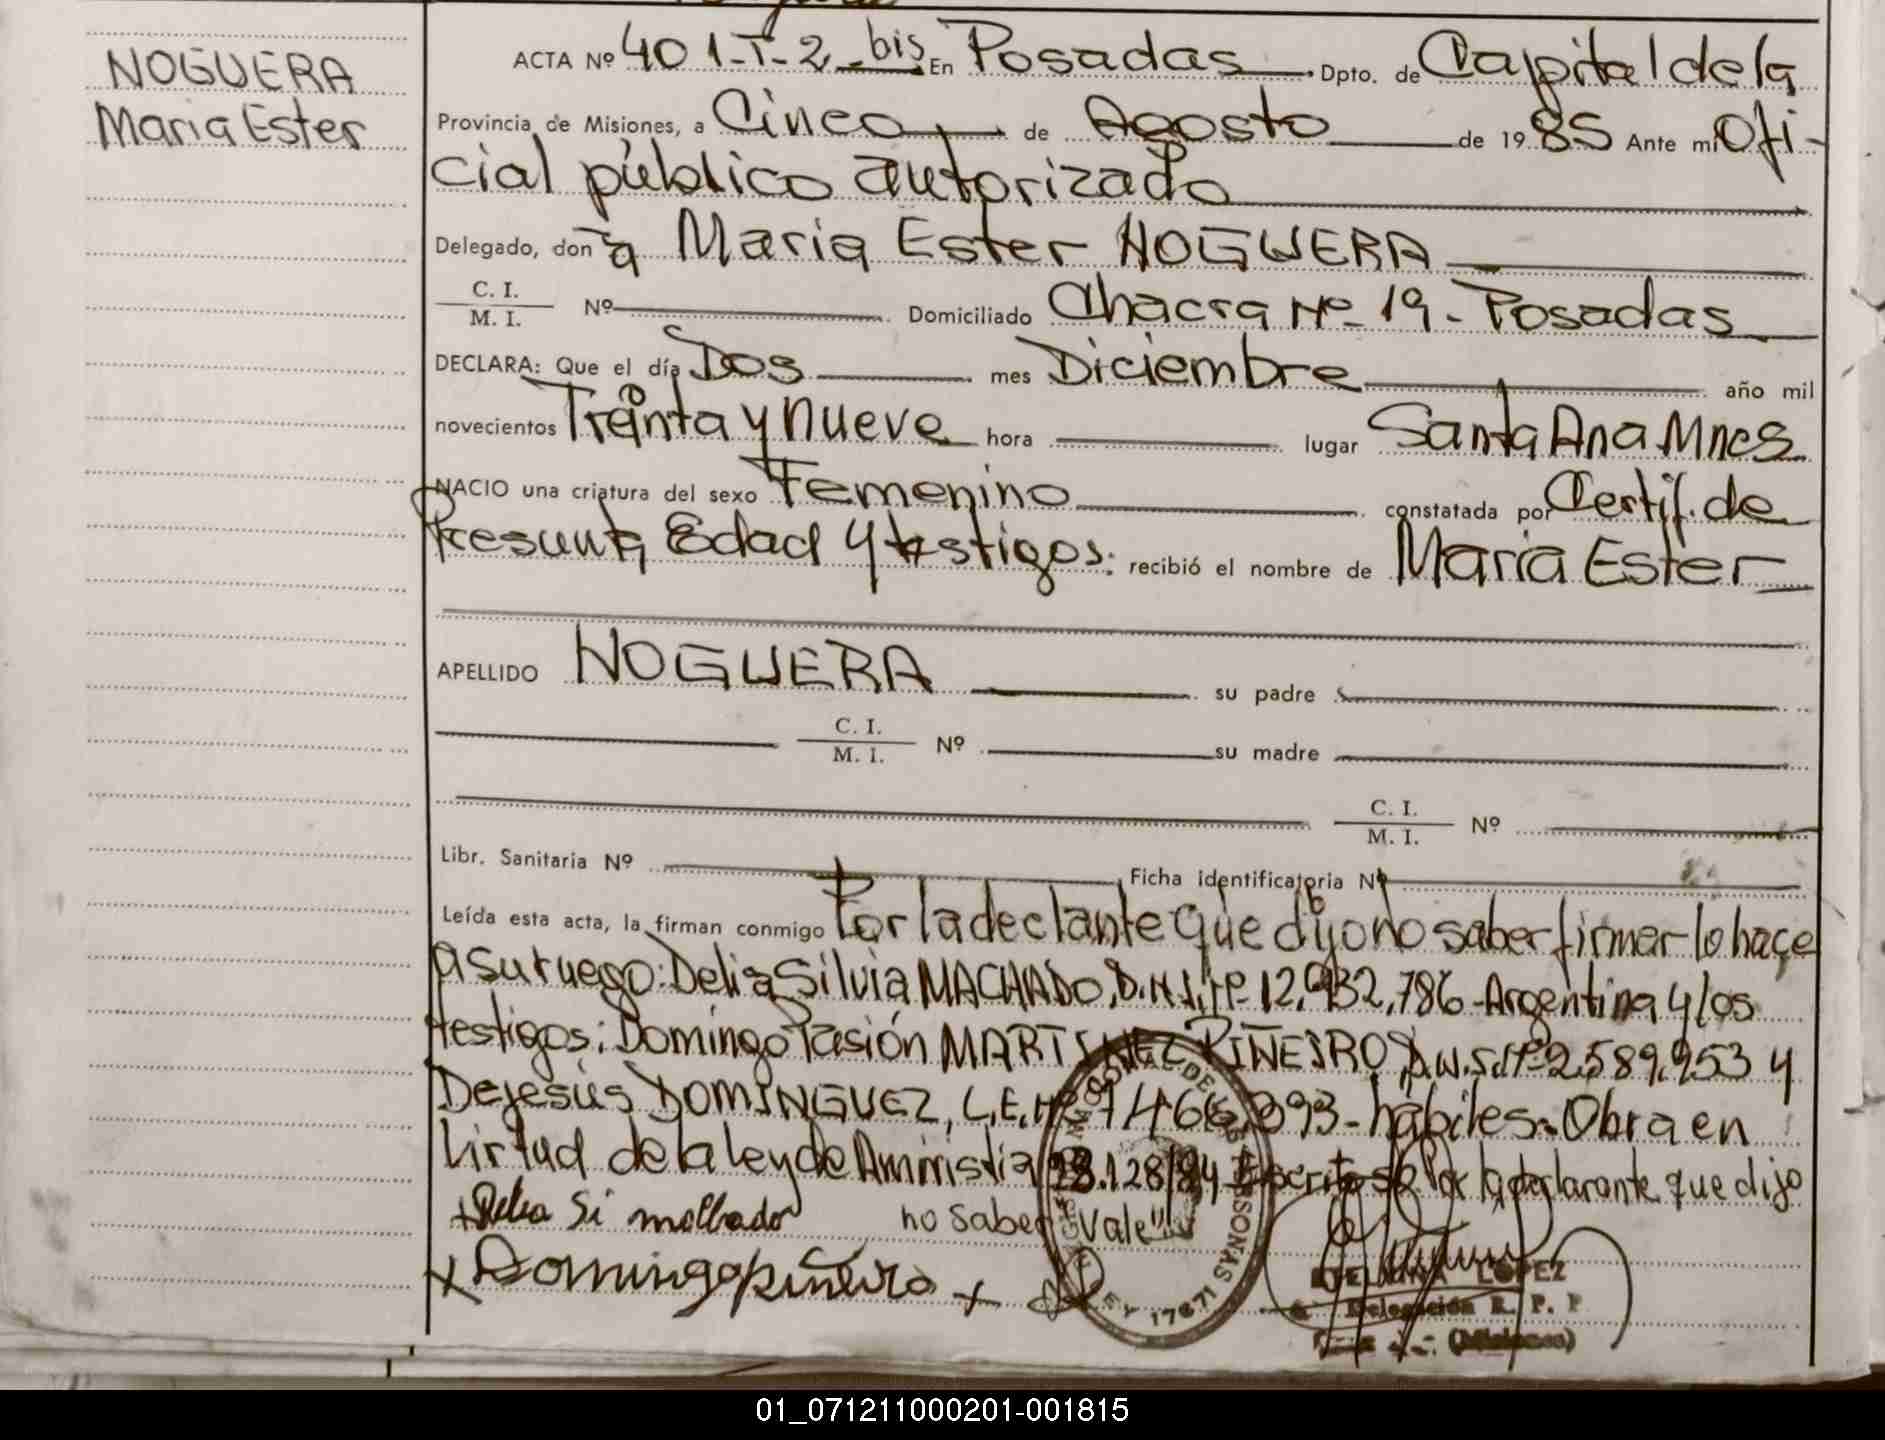 NOGUERA
Maria Ester
ACTA Nº 401-T-2-bis En Posadas Dpto. de Capital de la
Provincia de Misiones, a Cinco de Agosto de 1985 Ante mi Ofi-
cial público autorizado
Delegado, don a Maria Ester NOGUERA
C. I.
M. I. Nº Domiciliado Chacra Nº 19 - Posadas
DECLARA: Que el día Dos mes Diciembre año mil
novecientos Treinta y nueve hora lugar Santa Ana Mnes
NACIO una criatura del sexo Femenino constatada por Certif. de
Presunta Edad y testigos: recibió el nombre de Maria Ester
APELLIDO NOGUERA su padre
C. I.
M. I. Nº su madre
C. I.
M. I. Nº
Libr. Sanitaria Nº Ficha identificatoria Nº
Leída esta acta, la firman conmigo Por la declante que dijo no saber firmar lo hace
a su ruego: Delia Silvia MACHADO, D.N.I. Nº 12.932.786 - Argentina y los
testigos: Domingo Pasión MARTINEZ PIÑEIRO, Nº 2.589.953 y
Dejesús DOMINGUEZ, L.E. Nº 7466.393 - hábiles. Obra en
Virtud de la ley de Aminístia 23.128/84 Escrito Por la declarante que dijo
Si no saber "Vale"
Domingo piñeiro
LEY 17671
LOPEZ
Delegación R. P. P
(Misiones)
01_071211000201-001815